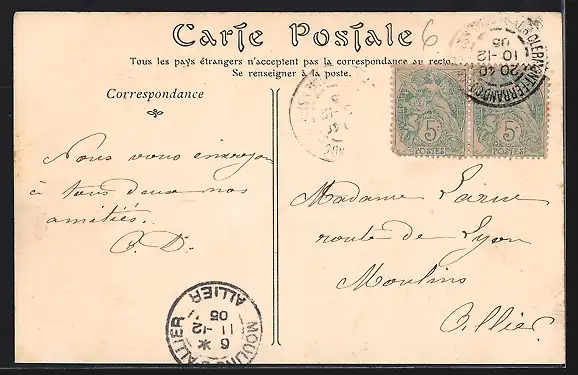 Carte Postale
6
Tous les pays étrangers n'acceptent pas la correspondance au recto.
Se renseigner à la poste.
Correspondance
Nous vous envoyons
à tous deux nos
amitiés.
CLERMONT-FERRAND
20 40
10 -12
05
5c
POSTES
5c
POSTES
Madame
route de Lyon
Moulins
Allier
MOULINS ALLIER
6 *
11 -12
05
ALLIER